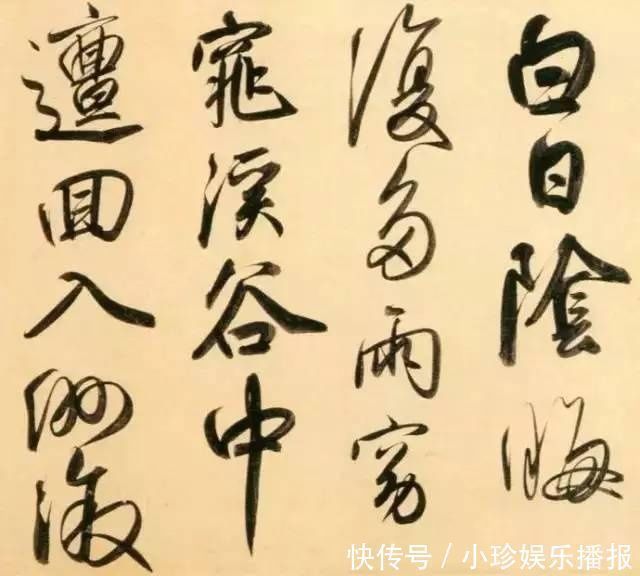 白日陰晦
復多雨窈
窕溪谷中
邅回入洲漵
快传号 / 小珍娱乐播报